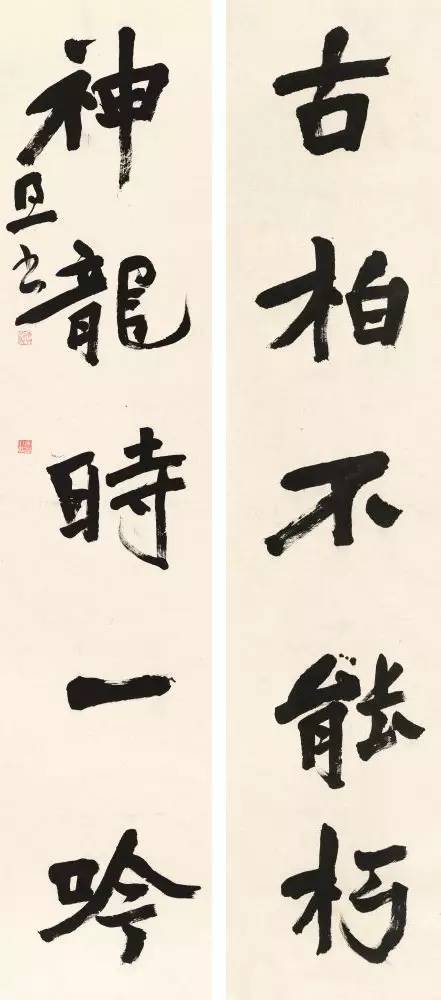 古柏不能朽
神龍時一吟
旦书